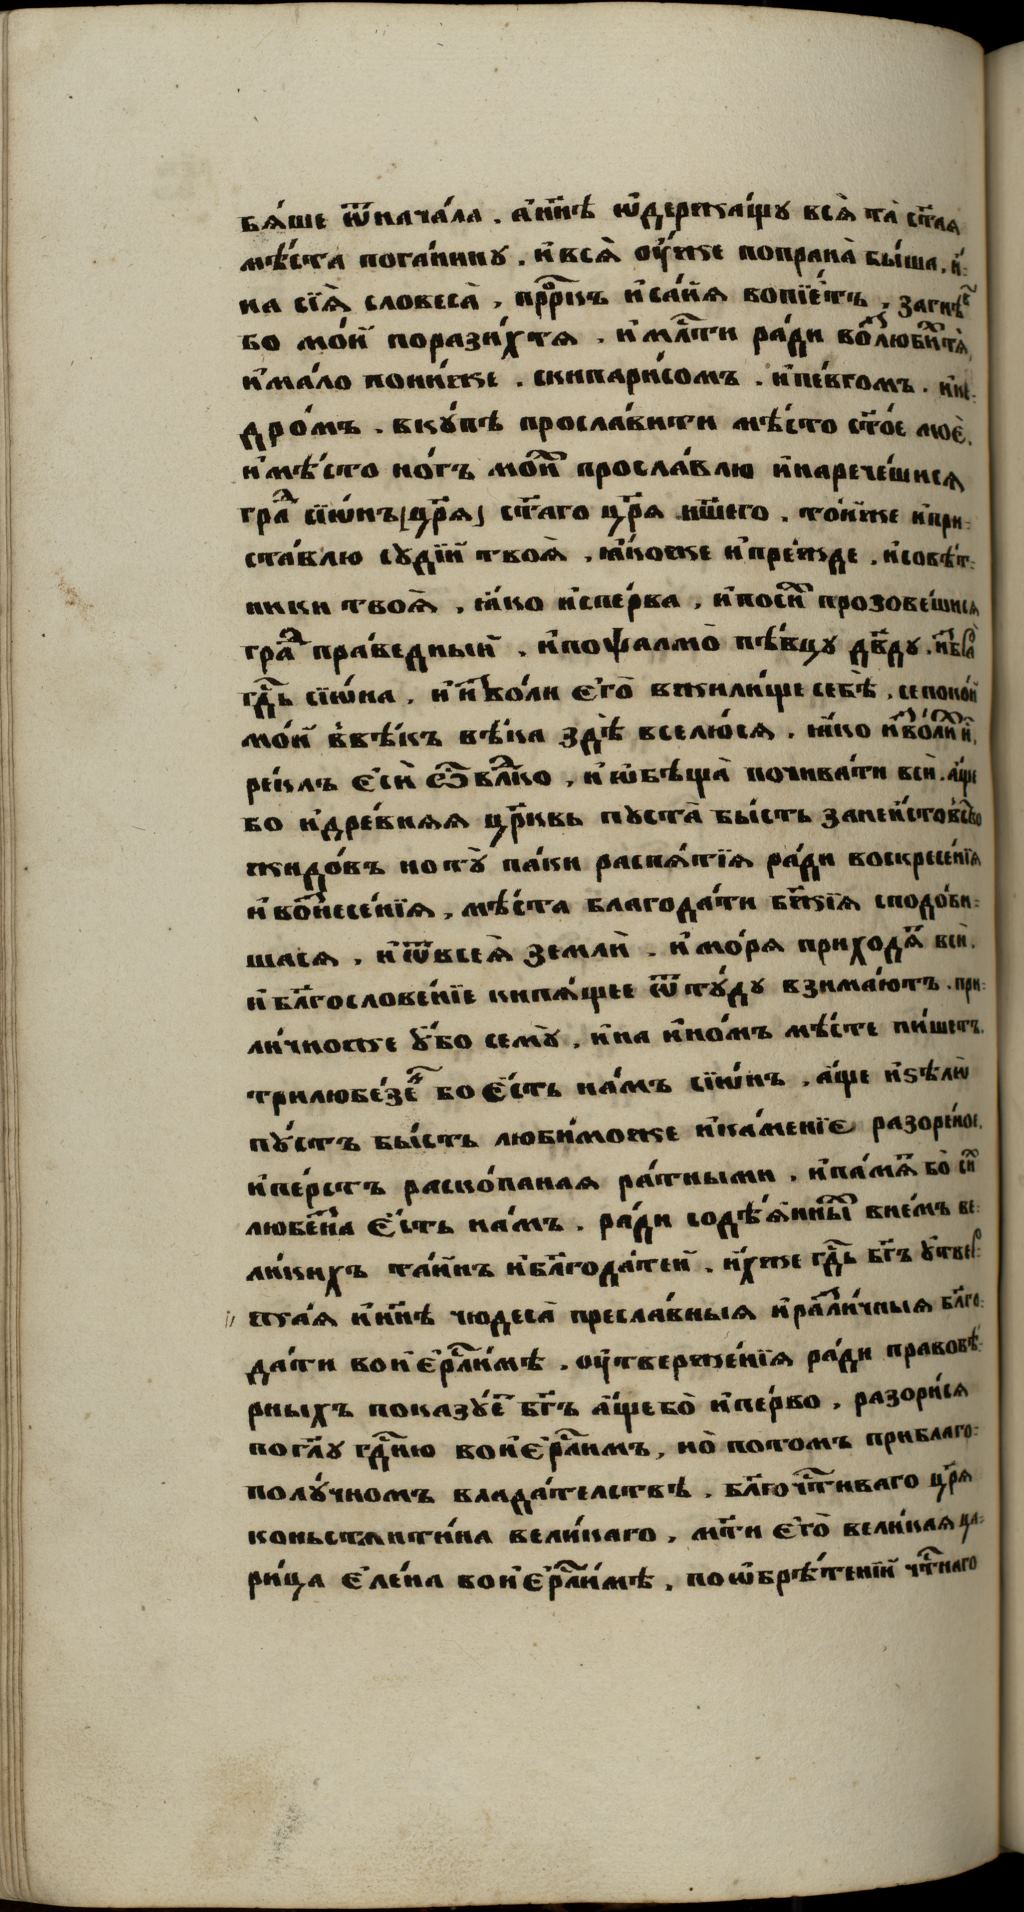 бѧ́ше ѿнача́ла . а҆нн҃ѣ ѡ҆держа́щу всѧ̀ та̀ ст҃аѧ
мѣ́ста пога́нину . и҆всѧ̀ оу҆́же попрана̀ бы́ша . и҆
на сїѧ̀ словеса̀ , прⷪ҇ркъ и҆са́иѧ вопїе́тъ , загнѣⷡ҇
бо мо́й порази́хтѧ . и҆млⷭ҇ти ра́ди воⷥлюби́хтѧ
и҆ма́ло пони́же . скипари́сомъ . и҆пе́вгомъ . и҆ке-
дро́мъ . вку́пѣ просла́вити мѣ́сто ст҃о́е моѐ .
и҆мѣ́сто но́гъ мои́х просла́влю и҆нарече́шисѧ
граⷣ сїѡ́нъ [цр҃ѧ] ст҃а́го цр҃ѧ нш҃его . то́йже и҆при-
ста́влю судїи̑ твоѧ̀ , ꙗ҆́коже и҆пре́жде . и҆совѣ́т-
ники твоѧ̀ , ꙗ҆́ко и҆спе́рва , и҆поси́х прозове́шисѧ
граⷣ пра́ведный . и҆поѱалмо̀ пѣ́вцу дв҃ду . и҆ꙁбра̀
гдⷭ҇ь сїѡ́на . и҆ и҆ꙁво́ли є҆го̀ вжили́ще себѣ̀ . се поко́й
мо́й ввѣ́къ вѣ́ка здѣ̀ вселю́сѧ . ꙗ҆́ко и҆ꙁво́лих и҆̀ .
ре́клъ є҆сѝ ѽ влⷣко , и҆ѡ҆бѣща̀ почива́ти всѝ . а҆́ще
бо и҆дре́внѧѧ цр҃ковь пуста̀ бы́сть занеи҆́стовство
жидо́въ но ту̀ па́ки распѧ́тїѧ ра́ди воскресе́нїѧ
и҆воⷥнесе́нїѧ , мѣ́ста благода́ти бж҃їѧ сподо́би-
шасѧ . и҆ѿвсеѧ̀ землѝ . и҆мо́рѧ прихо́дѧⷮ всѝ .
и҆бл҃гослове́нїе кипѧ́щее ѿту́ду взима́ютъ . при-
ли́чноже у҆́бо сему̀ , и҆на и҆но́мъ мѣ́сте пи́шетъ .
трилюбе́зеⷩ бо є҆́сть на́мъ сїѡ́нъ . а҆́ще и҆ѕѣлѡ̀
пу́стъ бы́сть люби́може и҆ка́менїе разоре́ное .
и҆пе́рсть раско́паная ра́тными . и҆па́мѧⷮ бо̀ си́х
любе́зна є҆́сть на́мъ . ра́ди содѣ́ѧнныⷯ вне́мъ ве-
ли́кихъ та́инъ и҆бл҃года́тей . и҆́хже гдⷭ҇ь бг҃ъ у҆твер-
жа́ѧ и҆нн҃ѣ чюдеса̀ пресла́вныѧ и҆разли́чныѧ бл҃го-
да́ти вои҆є҆рⷭ҇ли́мѣ . оу҆твержде́нїѧ ра́ди правовѣ́-
рныхъ показу́еⷮ бг҃ъ а҆́щебо̀ и҆пе́рво , разори́сѧ
погл҃у гдⷭ҇ню вои҆є҆рⷭ҇ли́мъ , но̀ пото́мъ приблаго-
полу́чномъ влада́тельствѣ . бл҃гочⷭ҇ти́ваго цр҃ѧ
коньстѧнти́на вели́каго , мт҃и є҆го̀ вели́каѧ ца-
ри́ца є҆ле́на вои҆є҆рⷭ҇ли́мѣ , поѡ҆брѣ́тенїи чⷭ҇тна́го